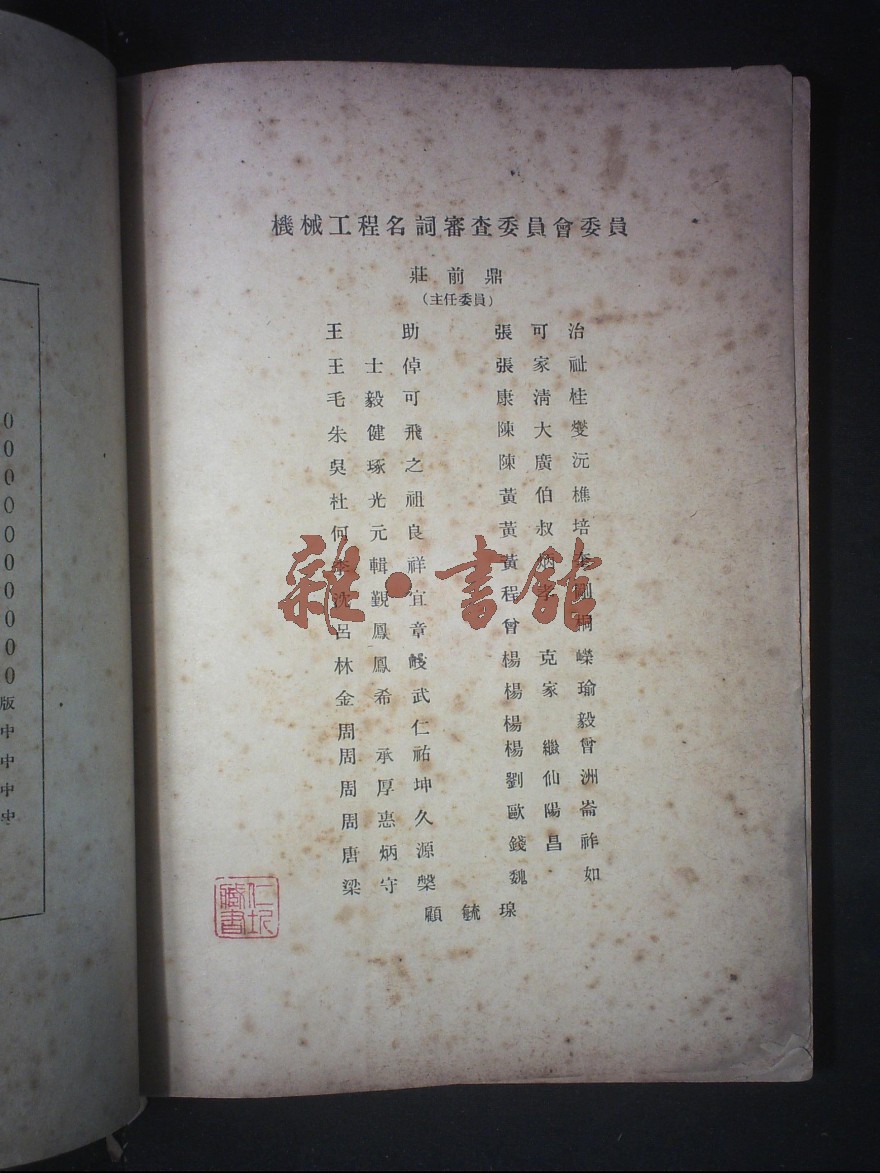 機械工程名詞審查委員會委員
莊前鼎
(主任委員)
王助 張可治
王士倬 張家祉
毛毅可 康清桂
朱健飛 陳大燮
吳琢之 陳廣沅
杜光祖 黃伯樵
何元良 黃叔培
李輯祥 黃炳奎
沈覲宜 程孝剛
呂鳳章 曾桐
林鳳岐 楊克嶸
金希武 楊家瑜
周仁 楊毅
周承祐 楊繼曾
周厚坤 劉仙洲
周惠久 歐陽崙
唐炳源 錢昌祚
梁守槃 魏如
顧毓瑔
雜·書館
仁圯藏書
0
0
0
0
0
0
0
0
0
0
版
中
中
中
中